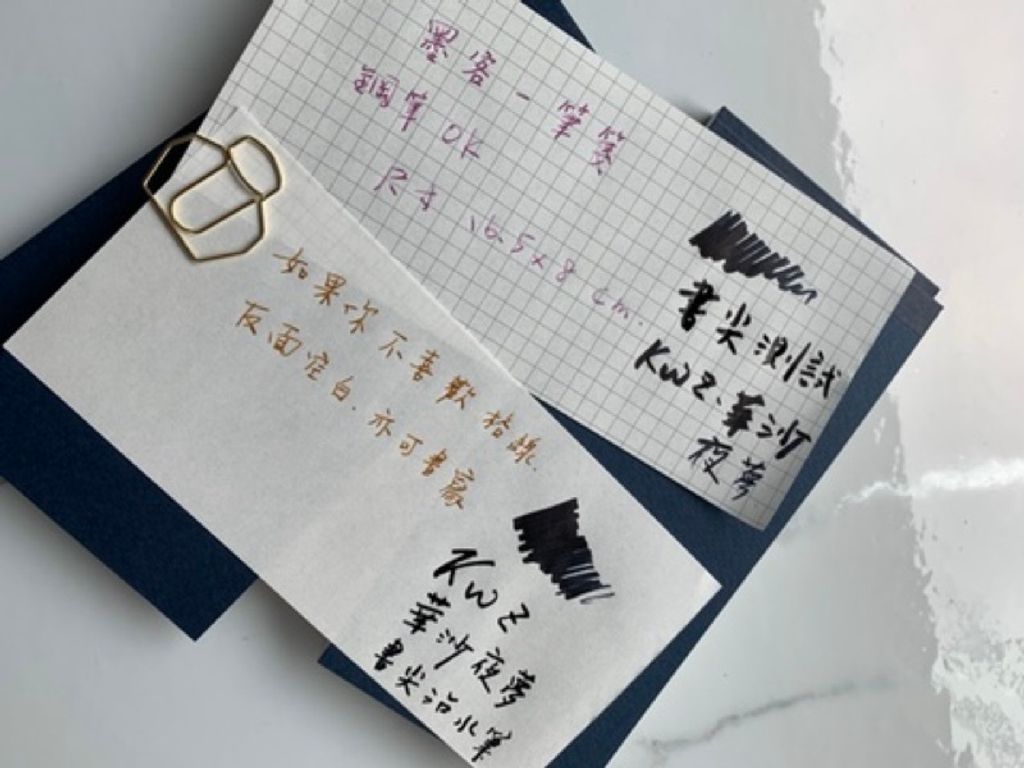 墨客-筆箋
鋼筆OK
尺寸 16.5x8 cm.
書尖測試
KWZ.華沙
夜夢
如果你不喜歡格線.
反面空白.亦可書寫
KWZ
華沙夜夢
書尖沾水筆